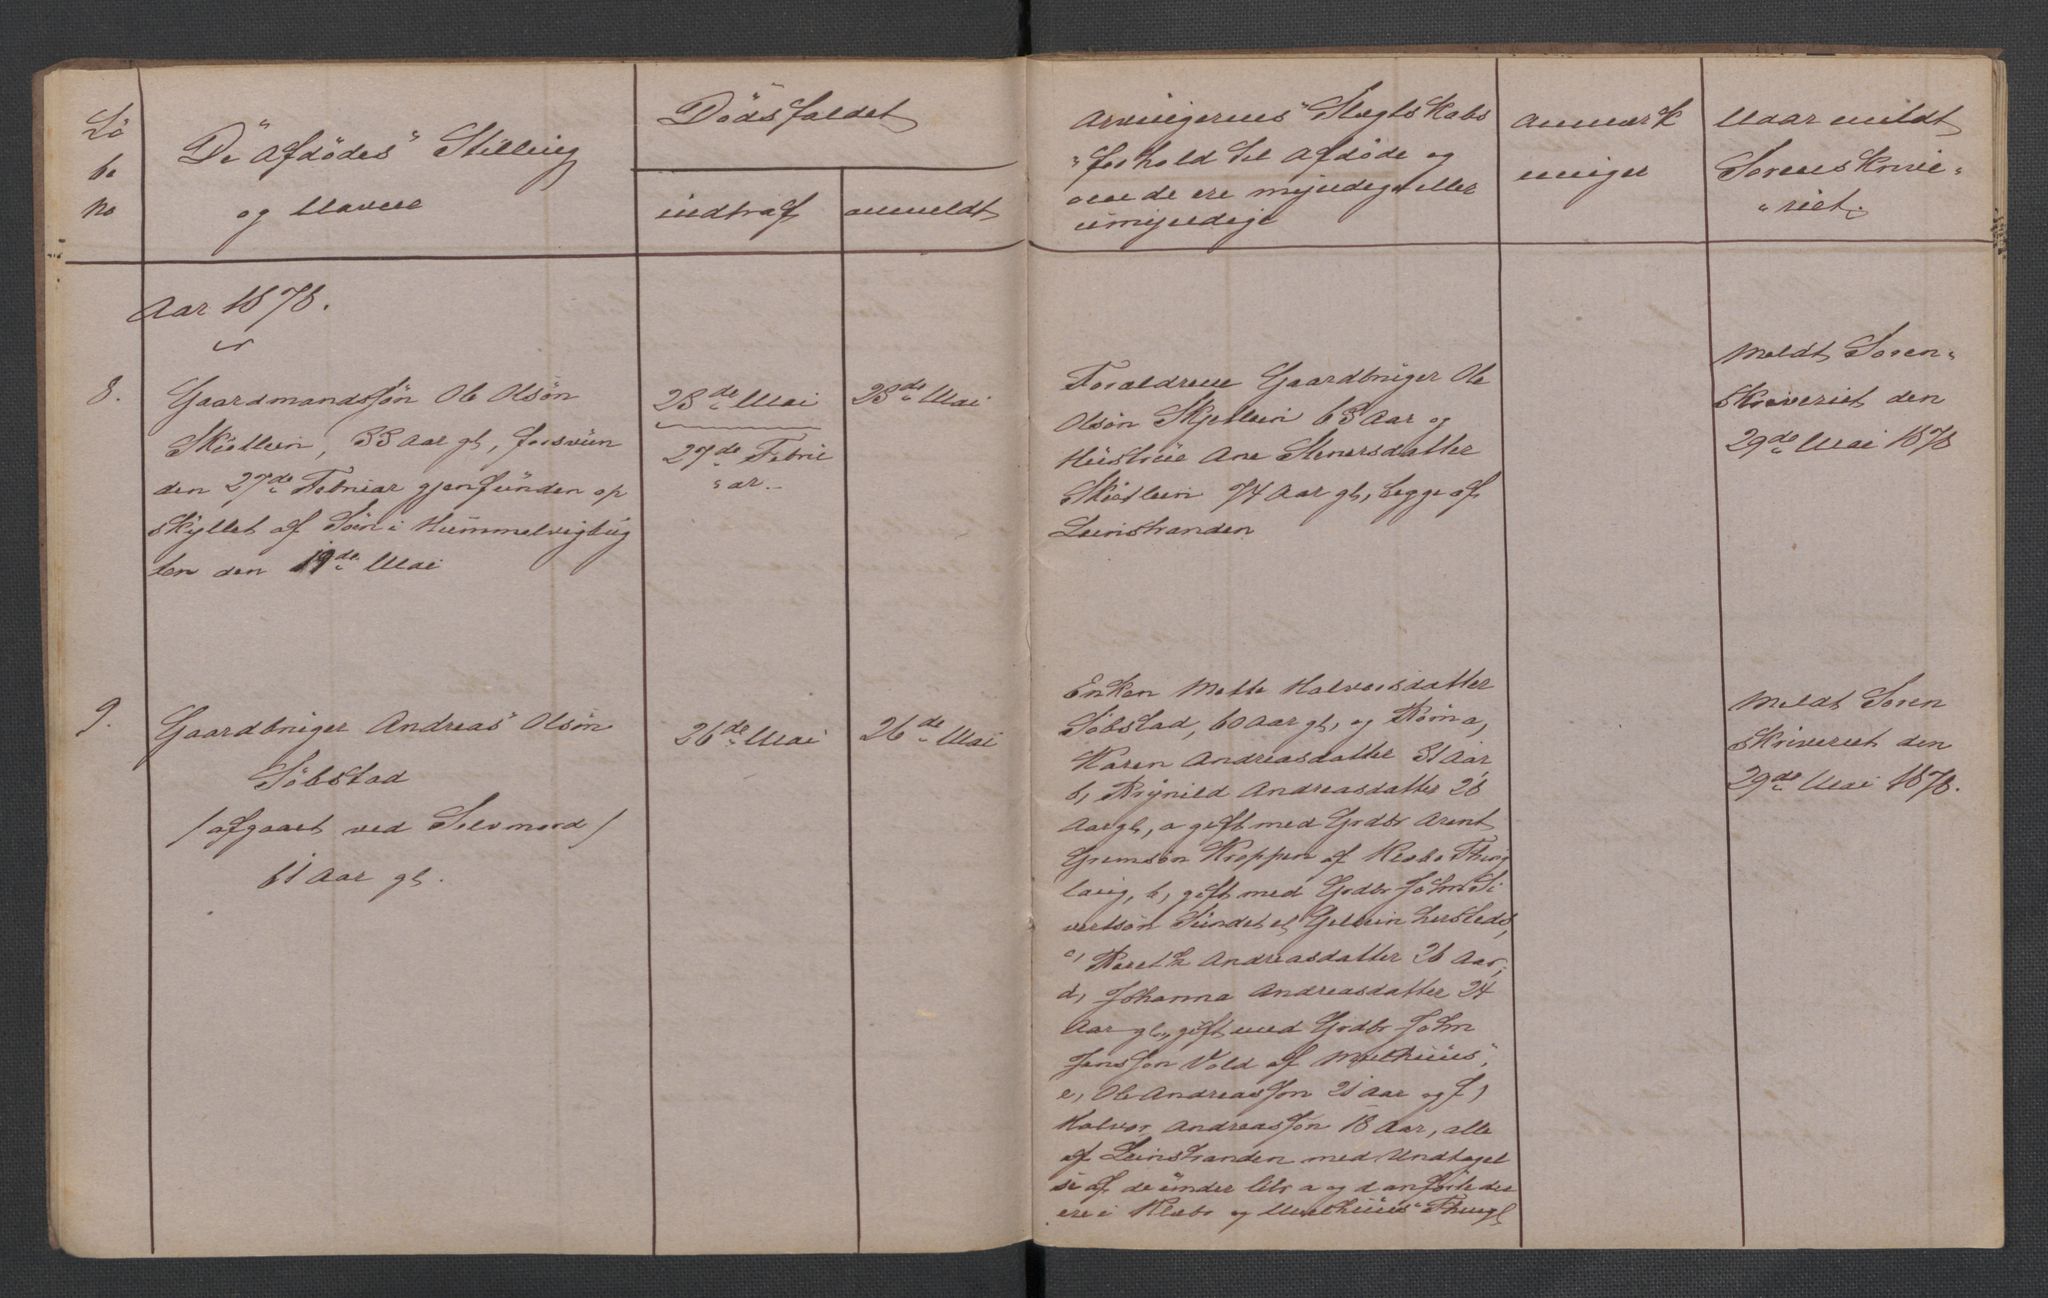 Lö
be
no
De Afdödes Stilling
og Navne
Dödsfaldet
indtraf
anmeldt
Arvingernes Slegtskabs
forhold til Afdöde og
om de ere myndige eller
umyndige
Anmærk
ninger
Naar mildt
Sorenskrive-
riet.
Aar 1878.
8.
Gaardmandssön Ole Olsön
Skjetlein, 33 Aar gl, forsvün
den 27de Februar gjenfünden op
skyllet af Söen i Hummelvigbüg
ten den 19de Mai
28de Mai
27de Febru
ar.
28de Mai
Forældrene Gaardbruger Ole
Olsön Skjetlein 63 Aar og
Hüstrüe Ane Stenersdatter
Skjetlein 74 Aar gl, begge af
Leinstranden
Meldt Soren-
skriveriet den
29de Mai 1878
9.
Gaardbruger Andreas Olsön
Söbstad
/afgaaet ved Selvmord/
61 Aar gl.
26de Mai
26de Mai
Enken Mette Halvorsdatter
Söbstad, 60 Aar gl, og Börna,
Karen Andreasdatter 31 Aar,
b, Brynild Andreasdatter 28
Aar gl, a gift med Grdbr Arent
Gremsön Kroppen af Klæbo Thing
laug, b, gift med Grdbr John Si
vertsön Sündet et Gelvin Lersteds,
c, Bereth Andreasdatter 26 Aar,
d, Johanna Andreasdatter 24
Aar gl, gift med Grdbr John
Jensson Vold af Melhüus,
e, Ole Andreasson 21 Aar og f,
Halvor Andreasson 18 Aar, alle
af Leinstranden med Undtagel
se af de ünder litr a og d anförte der
ere i Klæbo og Melhüus Thingl
Meldt Soren
skriveriet den
29de Mai 1878.